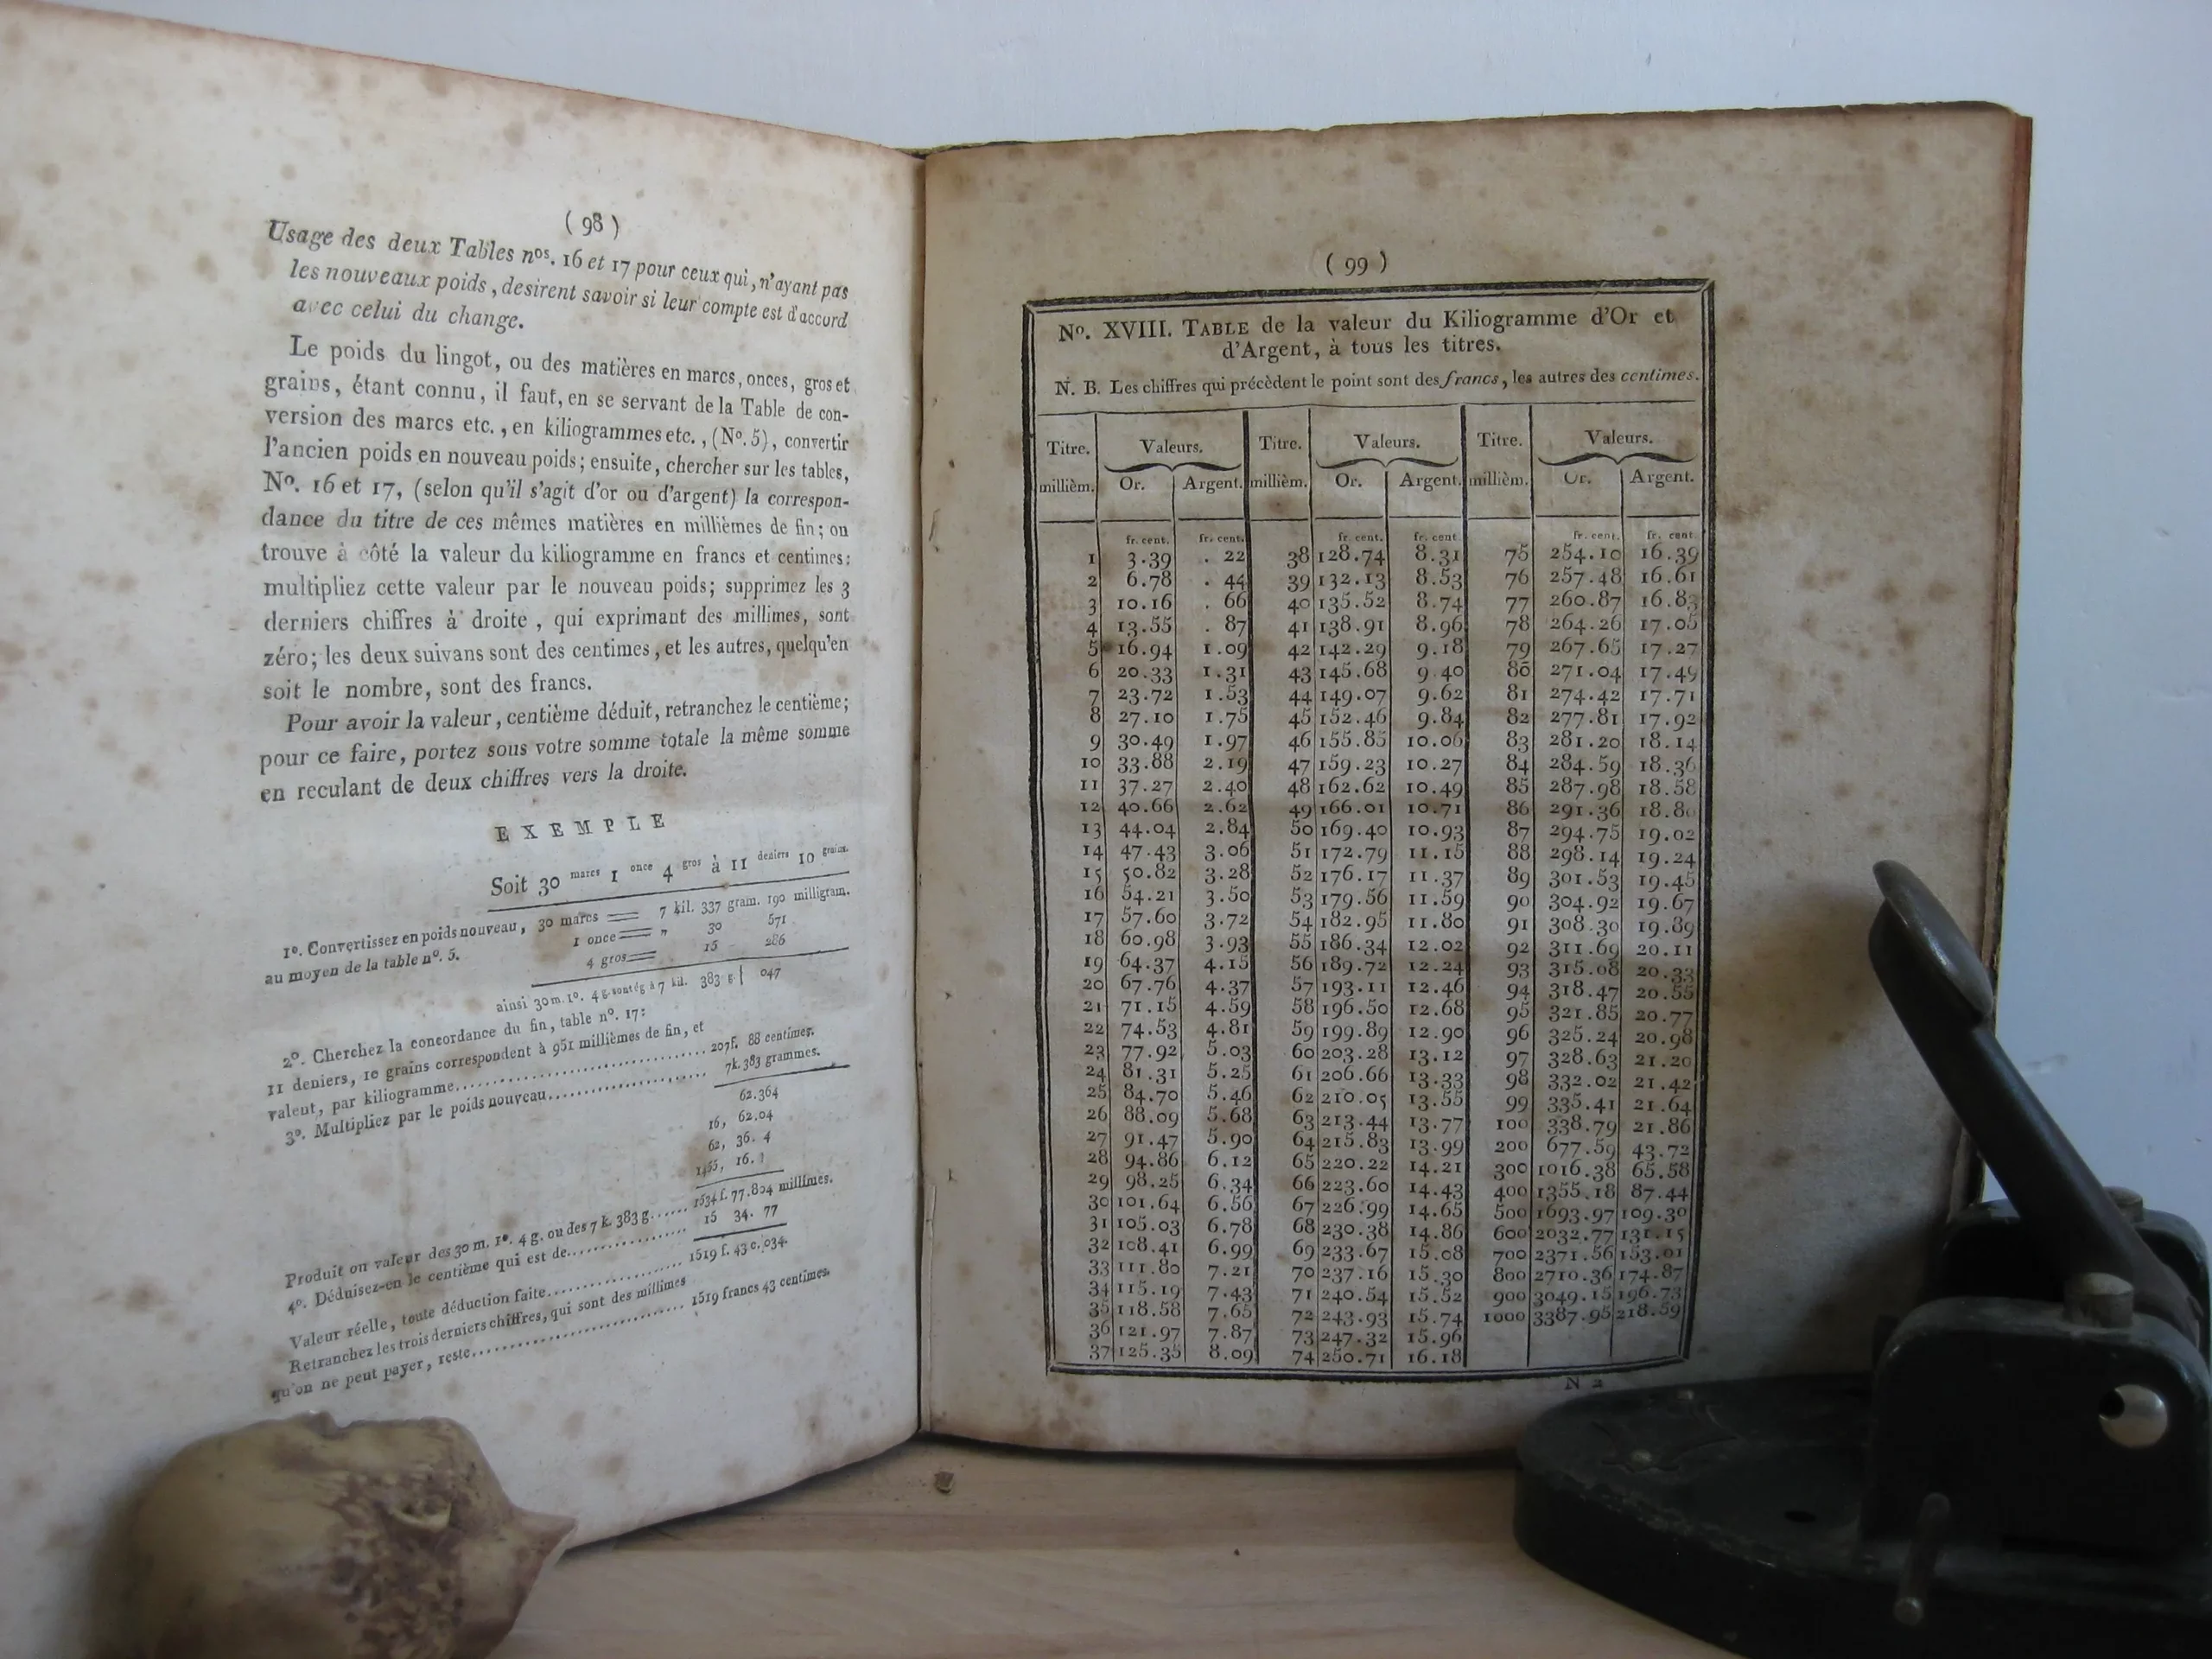 ( 98 )
Usage des deux Tables nos. 16 et 17 pour ceux qui, n'ayant pas
les nouveaux poids, desirent savoir si leur compte est d'accord
avec celui du change.
Le poids du lingot, ou des matières en marcs, onces, gros et
grains, étant connu, il faut, en se servant de la Table de con-
version des marcs etc., en kiliogrammes etc., (No. 5), convertir
l'ancien poids en nouveau poids; ensuite, chercher sur les tables,
No. 16 et 17, (selon qu'il s'agit d'or ou d'argent) la correspon-
dance du titre de ces mêmes matières en millièmes de fin; on
trouve à côté la valeur du kiliogramme en francs et centimes:
multipliez cette valeur par le nouveau poids; supprimez les 3
derniers chiffres à droite, qui exprimant des millimes, sont
zéro; les deux suivans sont des centimes, et les autres, quelqu'en
soit le nombre, sont des francs.
Pour avoir la valeur, centième déduit, retranchez le centième;
pour ce faire, portez sous votre somme totale la même somme
en reculant de deux chiffres vers la droite.
EXEMPLE
Soit 30 marcs 1 once 4 gros à 11 deniers 10 grains.
1o. Convertissez en poids nouveau, 30 marcs = 7 kil. 337 gram. 190 milligram.
au moyen de la table no. 5. 1 once = " 30 571
4 gros = 15 286
ainsi 30 m. 1o. 4 g. sont ég à 7 kil. 383 g { 047
2o. Cherchez la concordance du fin, table no. 17:
11 deniers, 10 grains correspondent à 951 millièmes de fin, et
valent, par kiliogramme.......... 207f. 88 centimes.
3o. Multipliez par le poids nouveau.......... 7k. 383 grammes.
62.364
16, 62.04
62, 36. 4
1455, 16.
Produit ou valeur des 30 m. 1o. 4 g. ou des 7 k. 383 g...... 1534 f. 77.804 millimes.
4o. Déduisez-en le centième qui est de.......... 15 34. 77
Valeur réelle, toute déduction faite.......... 1519 f. 43 c. 034.
Retranchez les trois derniers chiffres, qui sont des millimes
qu'on ne peut payer, reste.......... 1519 francs 43 centimes.
( 99 )
No. XVIII. TABLE de la valeur du Kiliogramme d'Or et
d'Argent, à tous les titres.
N. B. Les chiffres qui précèdent le point sont des francs, les autres des centimes.
Titre. Valeurs. Titre. Valeurs. Titre. Valeurs.
millièm. Or. Argent. millièm. Or. Argent. millièm. Or. Argent.
fr. cent. fr. cent. fr. cent. fr. cent. fr. cent. fr. cent.
1 3.39 . 22 38 128.74 8.31 75 254.10 16.39
2 6.78 . 44 39 132.13 8.53 76 257.48 16.61
3 10.16 . 66 40 135.52 8.74 77 260.87 16.83
4 13.55 . 87 41 138.91 8.96 78 264.26 17.05
5 16.94 1.09 42 142.29 9.18 79 267.65 17.27
6 20.33 1.31 43 145.68 9.40 80 271.04 17.49
7 23.72 1.53 44 149.07 9.62 81 274.42 17.71
8 27.10 1.75 45 152.46 9.84 82 277.81 17.92
9 30.49 1.97 46 155.85 10.06 83 281.20 18.14
10 33.88 2.19 47 159.23 10.27 84 284.59 18.36
11 37.27 2.40 48 162.62 10.49 85 287.98 18.58
12 40.66 2.62 49 166.01 10.71 86 291.36 18.80
13 44.04 2.84 50 169.40 10.93 87 294.75 19.02
14 47.43 3.06 51 172.79 11.15 88 298.14 19.24
15 50.82 3.28 52 176.17 11.37 89 301.53 19.45
16 54.21 3.50 53 179.56 11.59 90 304.92 19.67
17 57.60 3.72 54 182.95 11.80 91 308.30 19.89
18 60.98 3.93 55 186.34 12.02 92 311.69 20.11
19 64.37 4.15 56 189.72 12.24 93 315.08 20.33
20 67.76 4.37 57 193.11 12.46 94 318.47 20.55
21 71.15 4.59 58 196.50 12.68 95 321.85 20.77
22 74.53 4.81 59 199.89 12.90 96 325.24 20.98
23 77.92 5.03 60 203.28 13.12 97 328.63 21.20
24 81.31 5.25 61 206.66 13.33 98 332.02 21.42
25 84.70 5.46 62 210.05 13.55 99 335.41 21.64
26 88.09 5.68 63 213.44 13.77 100 338.79 21.86
27 91.47 5.90 64 215.83 13.99 200 677.59 43.72
28 94.86 6.12 65 220.22 14.21 300 1016.38 65.58
29 98.25 6.34 66 223.60 14.43 400 1355.18 87.44
30 101.64 6.56 67 226.99 14.65 500 1693.97 109.30
31 105.03 6.78 68 230.38 14.86 600 2032.77 131.15
32 108.41 6.99 69 233.67 15.08 700 2371.56 153.01
33 111.80 7.21 70 237.16 15.30 800 2710.36 174.87
34 115.19 7.43 71 240.54 15.52 900 3049.15 196.73
35 118.58 7.65 72 243.93 15.74 1000 3387.95 218.59
36 121.97 7.87 73 247.32 15.96
37 125.35 8.09 74 250.71 16.18
N 2